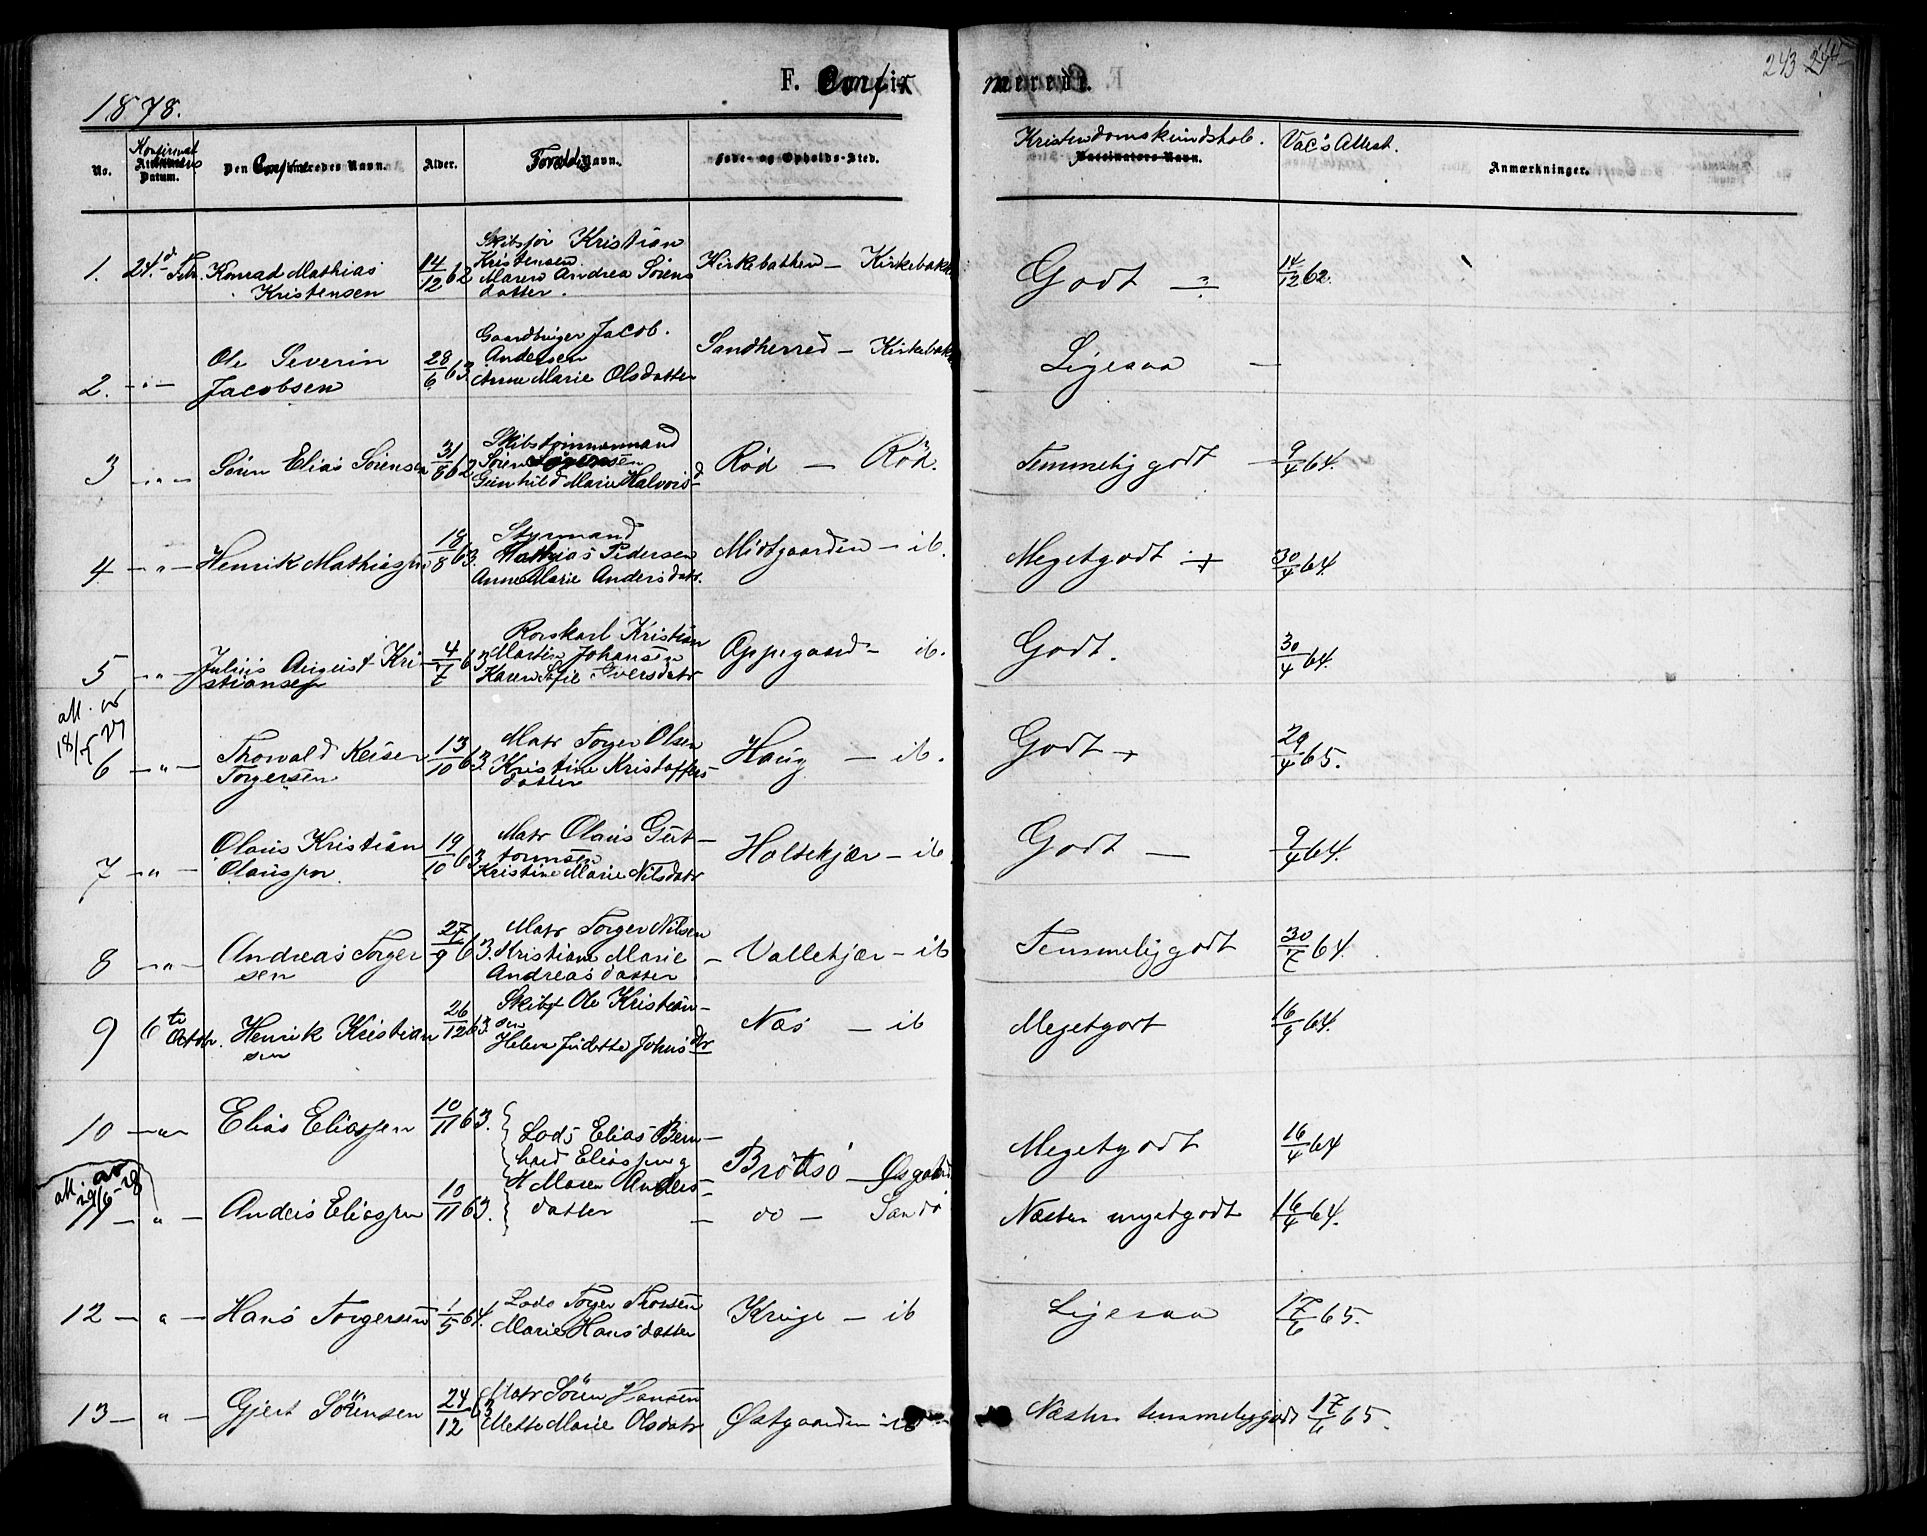 243 244
F. Confir merede.
1878.
No. Konfirmat. Datum. Den Confirmeredes Navn. Alder. Foreldr. Navn. Føde- og Opholds-Sted. Kristendomskundskab. Vac's Attest. Anmærkninger.
Skibsfør Kristian
1. 24de Febr. Konrad Mathias 14/12 62 Kristensen Kirkebakken – Kirkebakk Godt 14/12 62.
Kristensen Maren Andrea Sørens
datter.
Gaardbruger Jacob
Ole Severin 28/6 63. Andersen Sandherred – Kirkebakk Ligesaa –
2. -"- Jacobsen Anne Marie Olsdatter
Skibstømmermand
3 -"- Søren Elias Sørensen 31/8 62 Søren Sørensen Rød – Rød. Temmelig godt 9/4 64.
Gunhild Marie Halvorsd
Styrmand
4 -"- Henrik Mathiassen 18/8 63. Mathias Pedersen Midtgaarden – ib. Megetgodt + 30/4 64.
Anne Marie Andersdatr.
Rorskarl Kristian
5 -"- Julius August Kri- 4/7 63 Martin Johansen Oppegaard – ib. Godt. 30/4 64.
stiansen Karen Sofie Iversdatr
att.
18/5 27
6 -"- Thorvald Keiser 13/10 63. Matr Torger Olsen Haug – ib. Godt + 29/4 65.
Torgersen Kristine Kristoffers-
datter
Olaus Kristian 19/10 63. Matr Olaus Gut- Holtekjær – ib Godt – 9/4 64.
7 -"- Olaussen tormsen
Kristine Marie Nilsdatr
Matr Torger Nilsen
8 -"- Andreas Torger 27/9 63. Kristiane Marie – Vallekjær – ib Temmelig godt 30/4 64.
sen Andreasdatter
Skibsf Ole Kristian-
9 6te Octobr. Henrik Kristian 26/12 63. sen Næs – ib Megetgodt 16/9 64.
sen Helene Judithe Johnsdtr
10 -"- Elias Eliassen 10/11 63. Lods Elias Bern- Megetgodt 16/4 64
hard Eliassen og Brøtsø – Øsgaard
att. 29/6-28 Maren Anders-
11 -"- Anders Eliassen 10/11 63. datter – do – Sandø Næsten megetgodt 16/4 64.
12 -"- Hans Torgersen 1/5 64. Lods Torger Thorsen Kruge – ib Ligesaa 17/6 65.
Marie Hansdatter
13 -"- Gjert Sörensen 24/12 63 Matr Sören Hansen Østgaarden – ib Næsten temmeliggodt 17/6 65.
Mette Marie Olsdatr